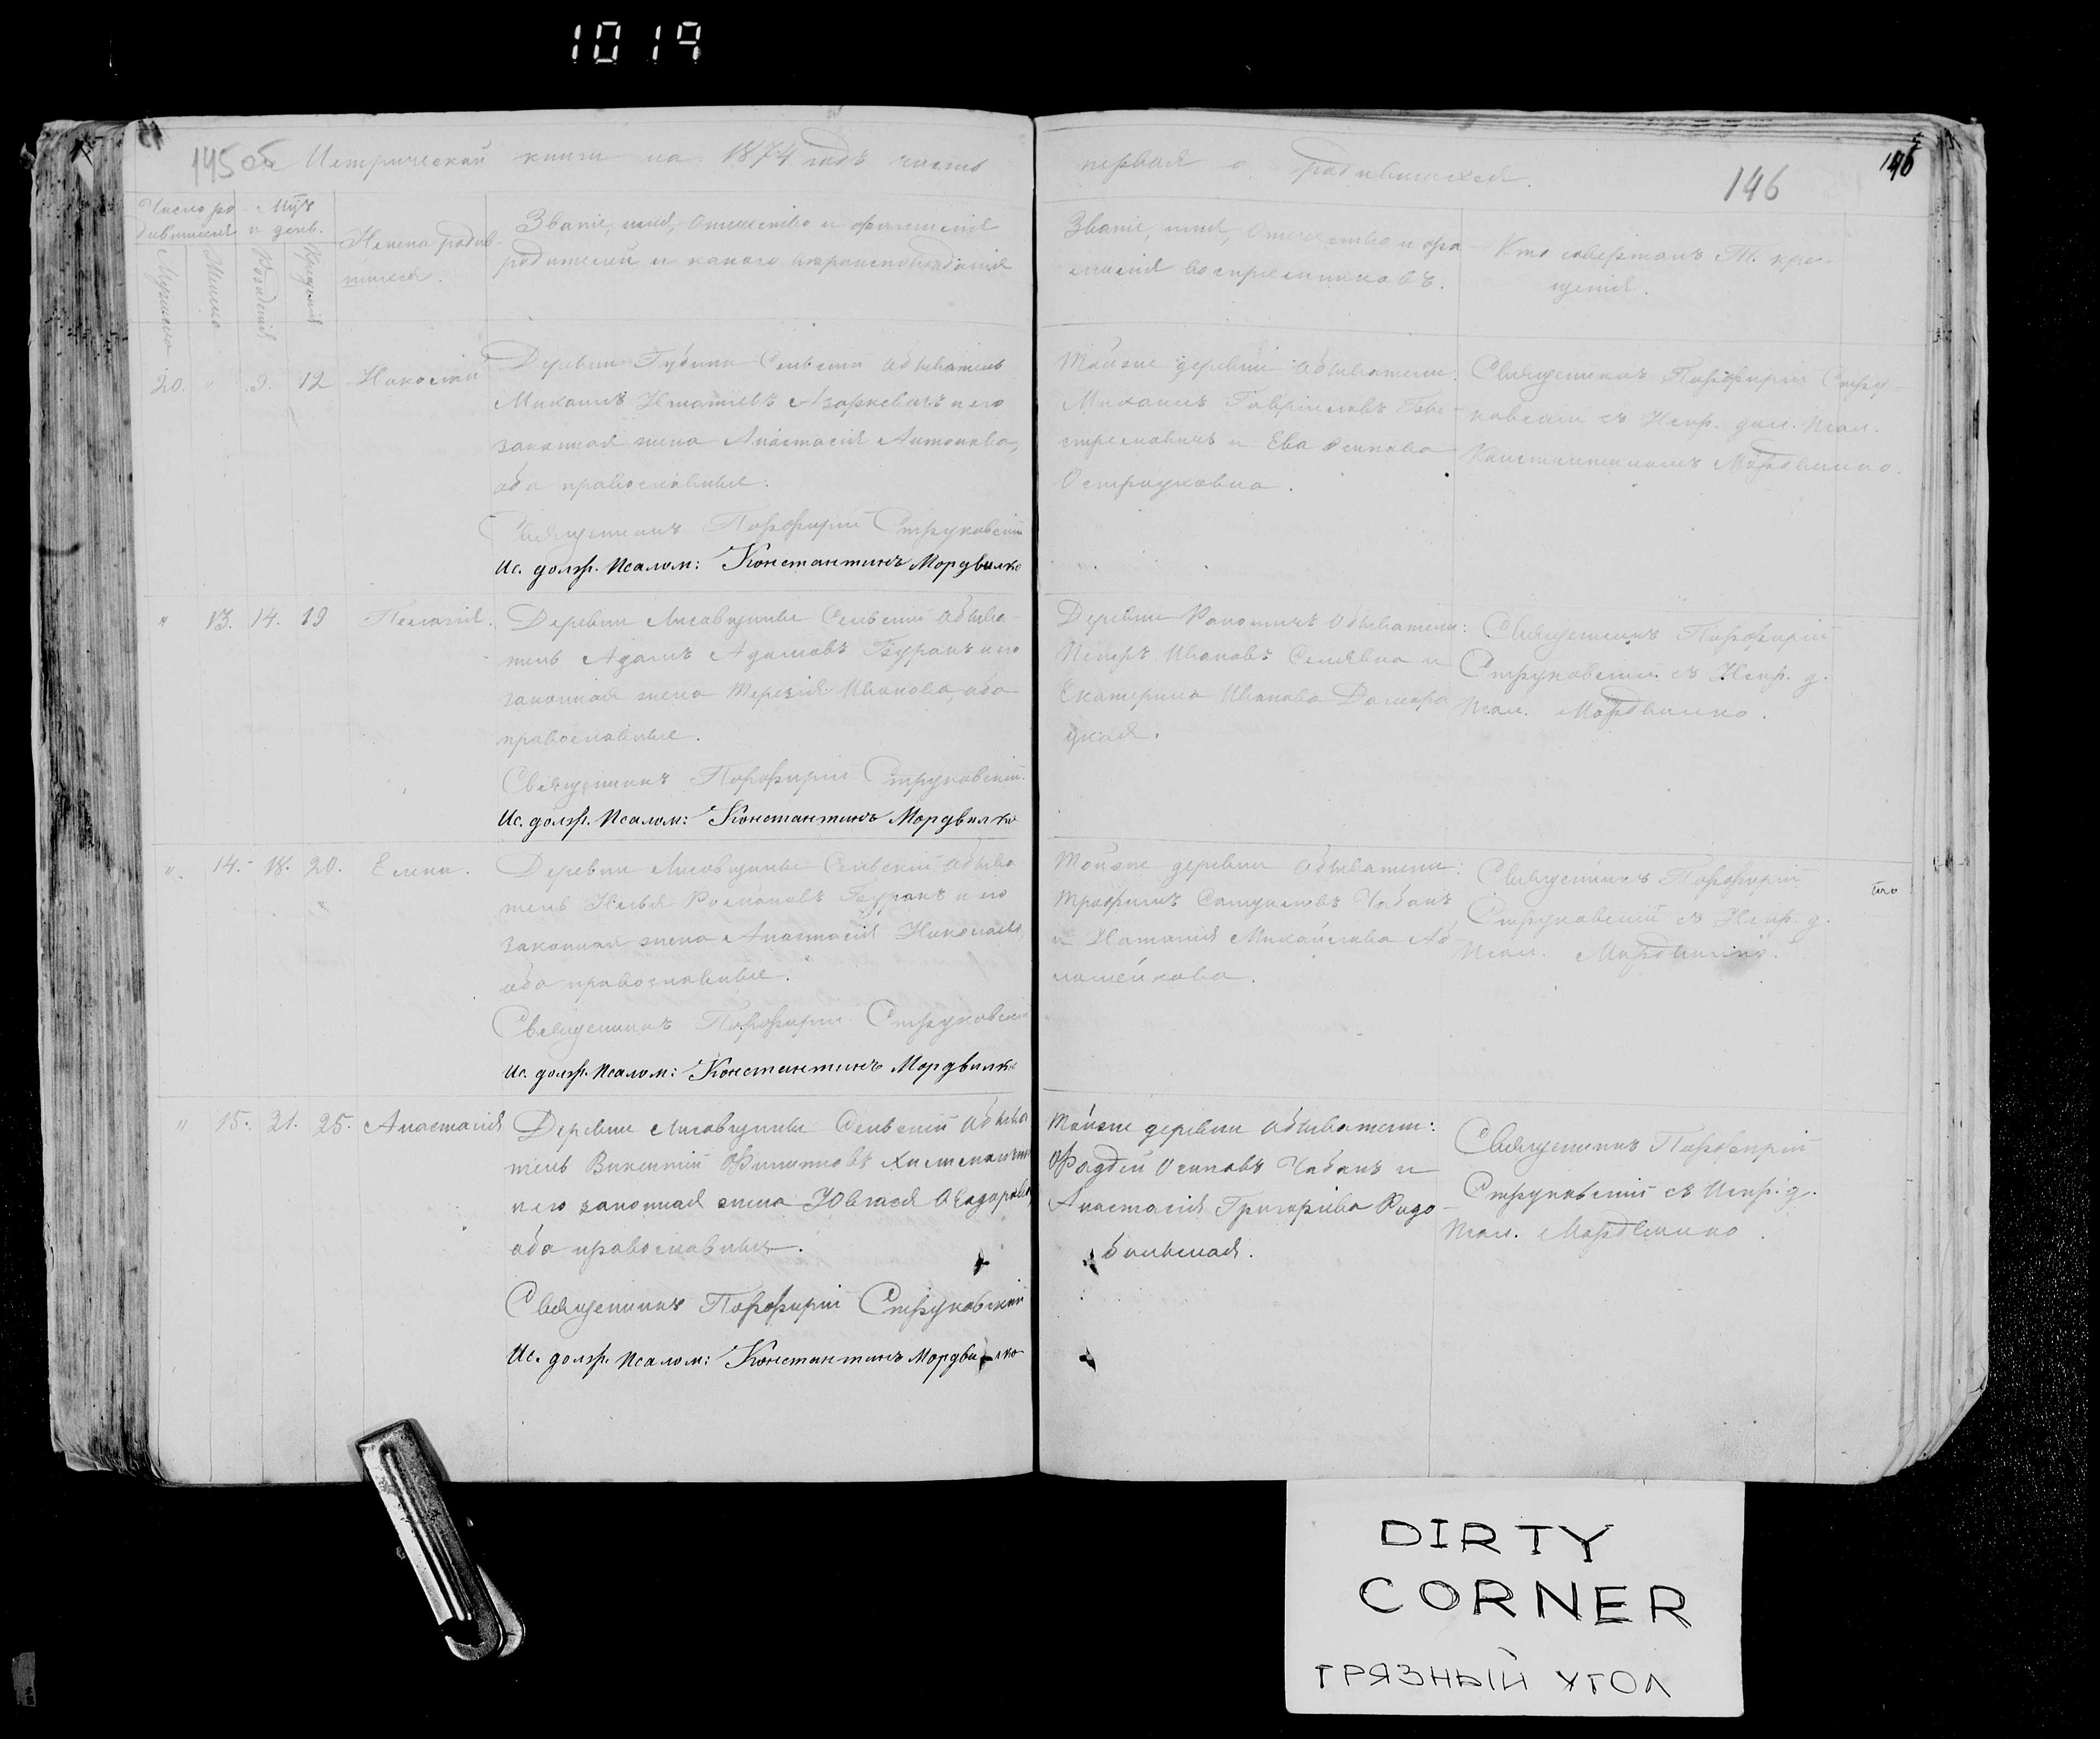 1019
145 об Метрической книги на 1874 годъ часть
первая о родившихся.
146
146
Число ро
дившихся
Мужеска
Женска
Мѣс
и день.
Рожденія
Крещенія
Имена родив-
шихся.
Званіе, имя, отчество и фамилія
родителей и какого вѣроисповѣданія
Званіе, имя, отчество и фа-
милія воспріемниковъ.
Кто совершалъ Т. кре-
щенія.
20. " 9. 12
Деревни Губина Сельскій обыватель
Михаилъ Игнатіевъ Азаркевичъ и его
законная жена Анастасія Антонова,
оба православные.
Священникъ Порфирій Струковскій
Ис. долж. Псалом: Константинъ Мордвилко
Тойже деревни обыватели:
Михаилъ Гавріиловъ
и Ева Осипова
Священникъ Порфирій Стру-
ковскій съ Испр. дол. Псал.
Константиномъ Мордвилко.
" 13. 14. 19 Пелагія.
Деревни Лисавщины Сельскій обыва-
тель Адамъ Адамовъ Буракъ и его
законная жена Терезія Иванова, оба
православные.
Священникъ Порфирій Струковскій.
Ис. долж. Псалом: Константинъ Мордвилко
Деревни обыватели:
Петръ Ивановъ и
Екатерина Иванова Домора
цкая.
Священникъ Порфирій
Струковскій съ Испр. д.
Псал. Мордвилко.
". 14. 18. 20. Елена.
Деревни Лисавщины Сельскій обыва
тель Илья Романовъ Буракъ и его
законная жена Анастасія
оба православные.
Священникъ Порфирій Струковскій
Ис. долж. Псалом: Константинъ Мордвилко
Тойже деревни обыватели:
Трофимъ Самуиловъ Чабанъ
и Наталія Михайлова
Священникъ Порфирій
Струковскій съ Испр. д.
Псал. Мордвилко.
" 15. 21. 25. Анастасія
Деревни Лисавщины Сельскій обыва
тель Викентій Филиповъ
и его законная жена Юлія
оба православные.
Священникъ Порфирій Струковскій
Ис. долж. Псалом: Константинъ Мордвилко
Тойже деревни обыватели:
Фаддей Осиповъ Чабанъ и
Анастасія Григорьева
Священникъ Порфирій
Струковскій съ Испр. д.
Псал. Мордвилко.
DIRTY
CORNER
ГРЯЗНЫЙ УГОЛ